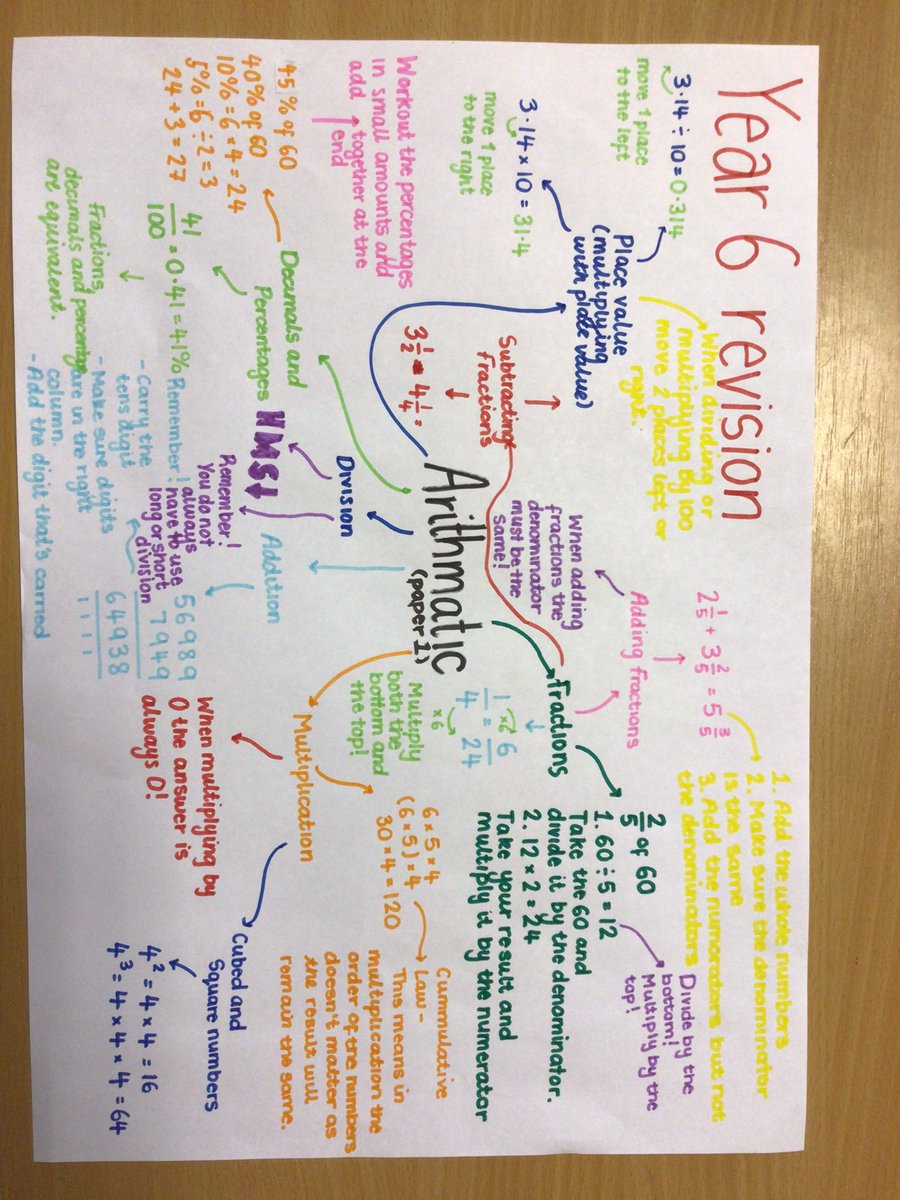 Year 6 revision
3.14 ÷ 10 = 0.314
move 1 place
to the left
3.14 x 10 = 31.4
move 1 place
to the right
Place value
(multiplying
with place value)
When dividing or
multiplying by 100
move 2 places left or
right.
Subtracting
fractions
3 1/2 - 4 1/4 =
Workout the percentages
in small amounts and
add together at the
end
45% of 60
40% of 60
10% = 6 x 4 = 24
5% = 6 ÷ 2 = 3
24 + 3 = 27
Decimals and
Percentages
41/100 = 0.41 = 41%
fractions,
decumals and percentages
are equivalent.
Arithmatic
(paper 1)
Fractions
Adding fractions
When adding
fractions the
denominator
must be the
same!
2 1/5 + 3 2/5 = 5 3/5
1. Add the whole numbers
2. Make sure the denominator
is the same
3. Add the numorators but not
the denominators
2/5 of 60
1. 60 ÷ 5 = 12
Take the 60 and
divide it by the denominator.
2. 12 x 2 = 24
Take your result and
multiply it by the numerator
Divide by the
bottom!
Multiply by the
top!
x6
1/4 = 6/24
x6
Multiply
both the
bottom and
the top!
Division
HMS↓
Remember!
You do not
always
have to use
long or short
division
Addition
56989
7949
64938
1 1 1 1
Remember!
- Carry the
tens digit
- Make sure digits
are in the right
column.
- Add the digit that's carried
Multiplication
When multiplying by
0 the answer is
always 0!
6 x 5 x 4
(6 x 5) x 4
30 x 4 = 120
Cummulative
Law -
This means in
multiplication the
order of the numbers
doesn't matter as
the result will
remain the same.
Cubed and
Square numbers
4² = 4 x 4 = 16
4³ = 4 x 4 x 4 = 64